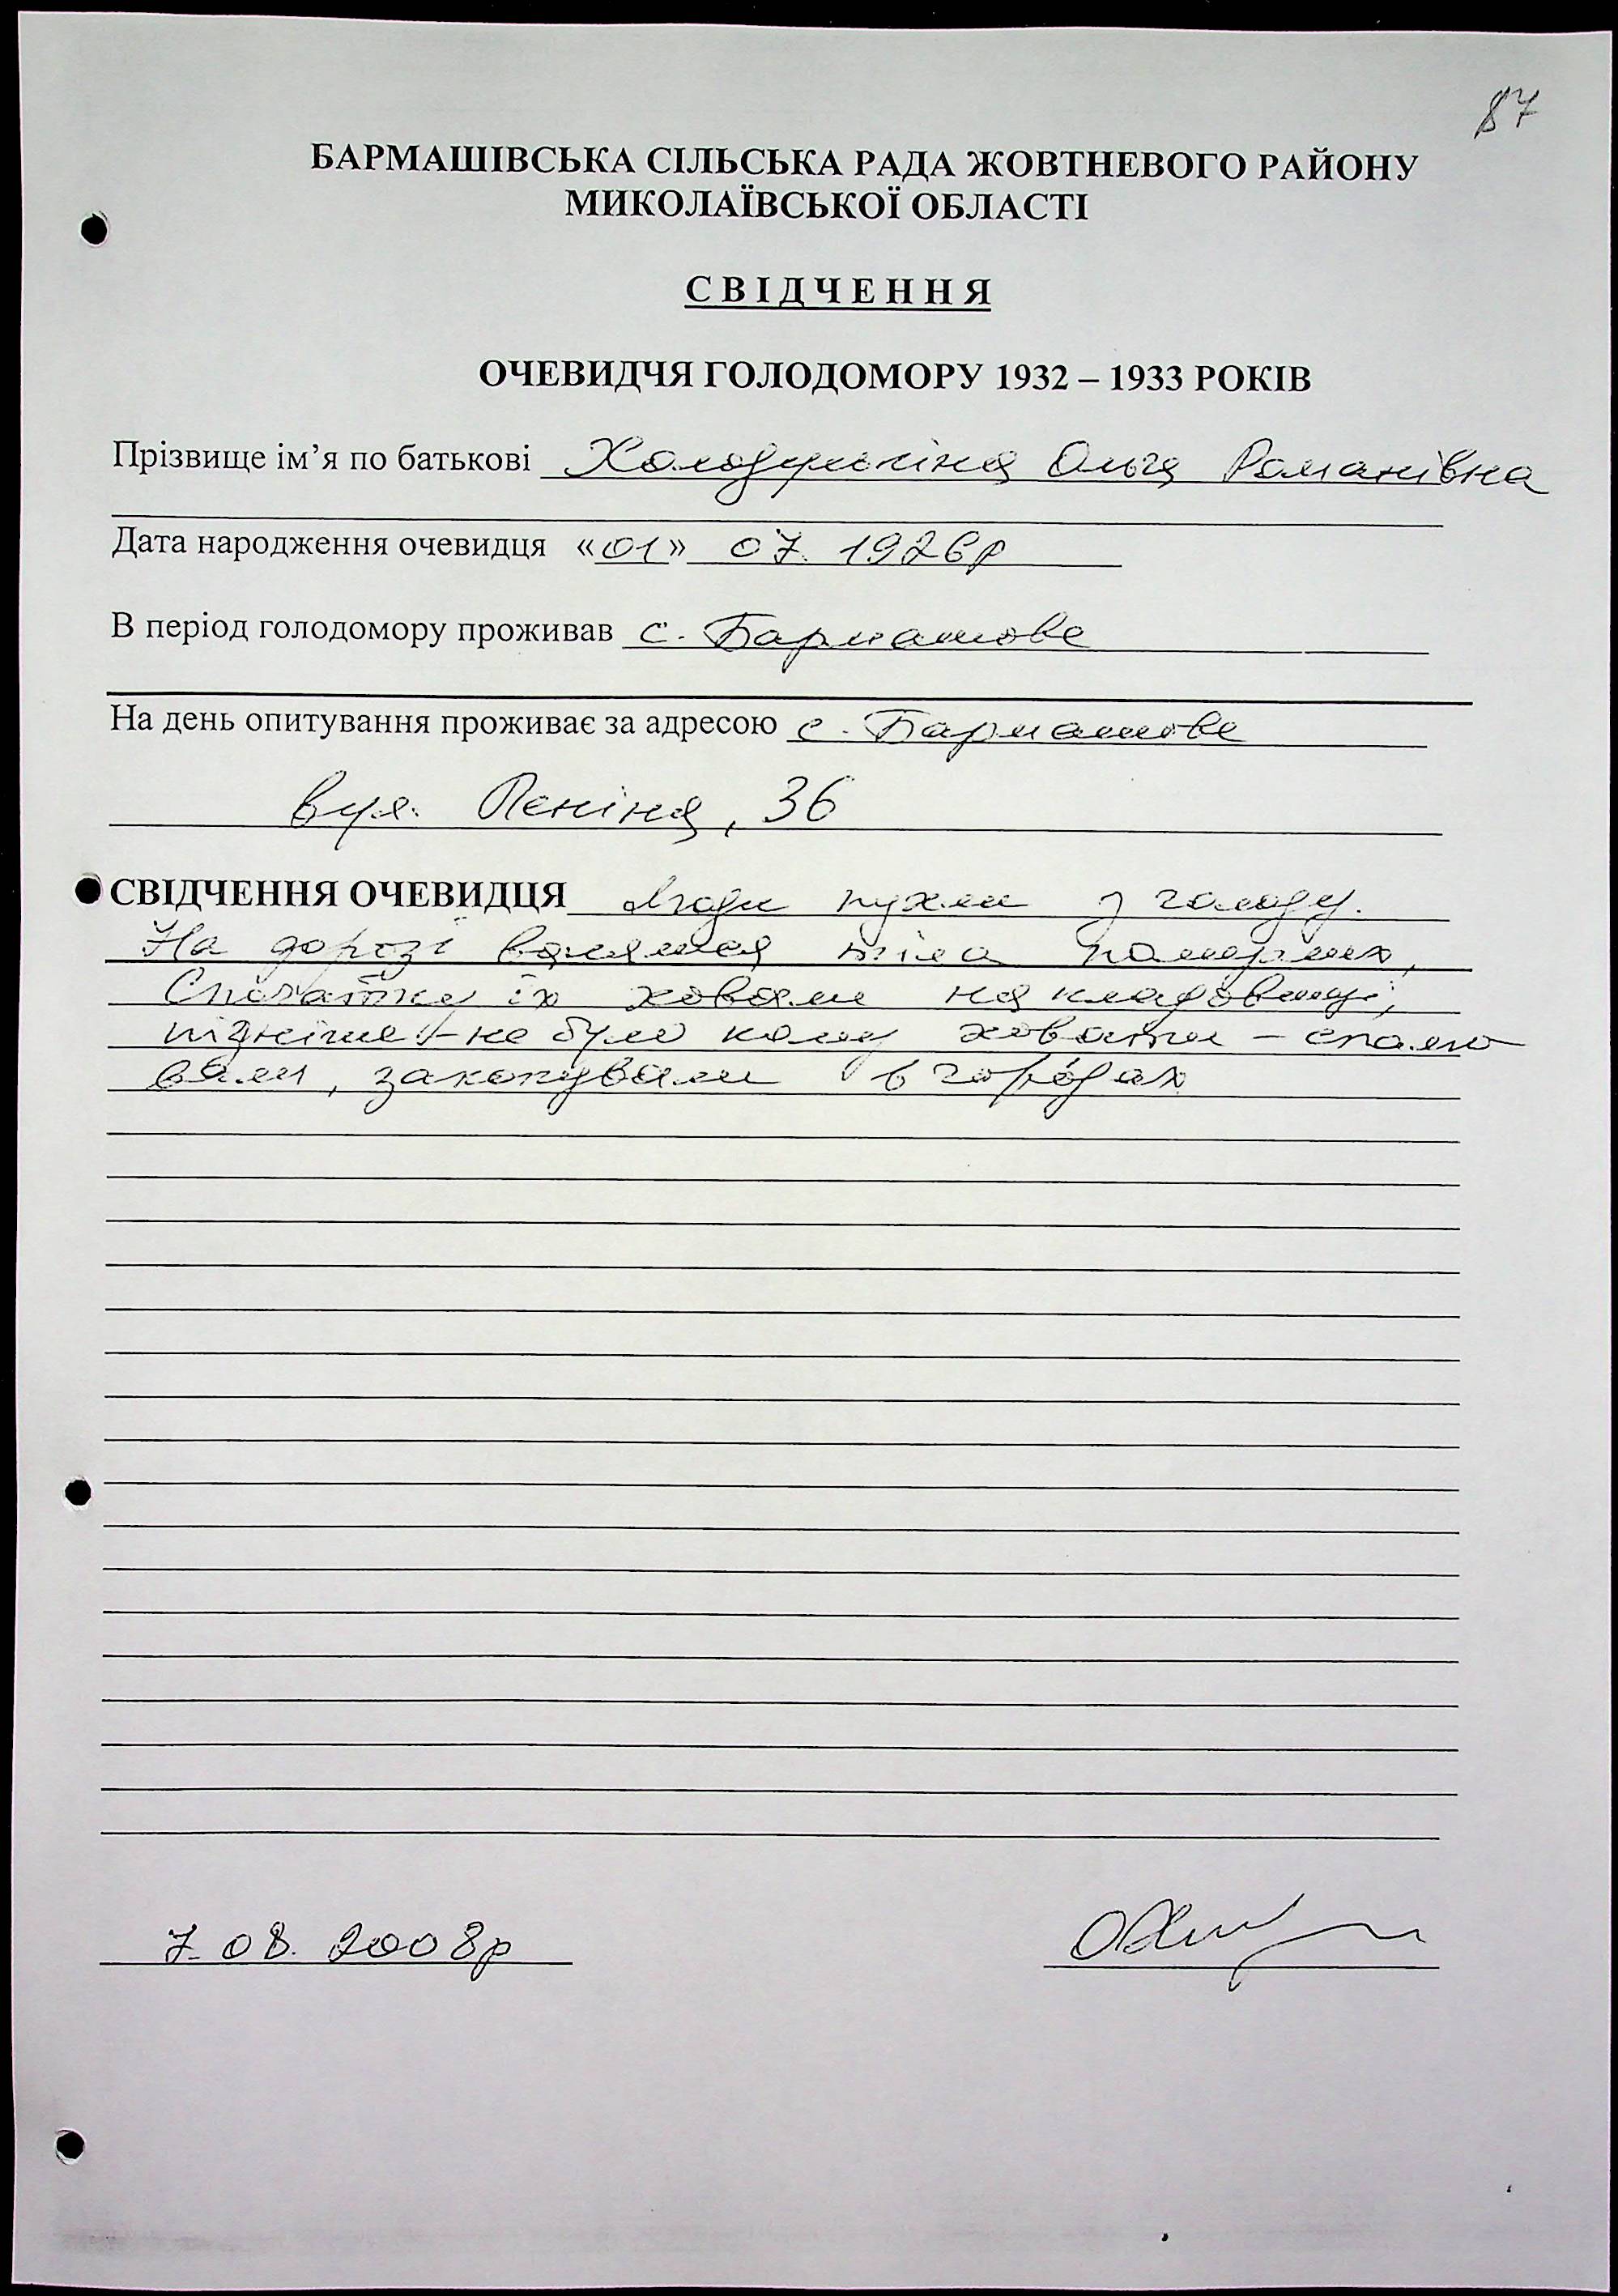 87
БАРМАШІВСЬКА СІЛЬСЬКА РАДА ЖОВТНЕВОГО РАЙОНУ
МИКОЛАЇВСЬКОЇ ОБЛАСТІ
СВІДЧЕННЯ
ОЧЕВИДЧЯ ГОЛОДОМОРУ 1932 – 1933 РОКІВ
Прізвище ім’я по батькові Ольга Романівна
Дата народження очевидця «01» 07. 1926р
В період голодомору проживав с. Бармашове
На день опитування проживає за адресою с. Бармашове
вул. Леніна, 36
СВІДЧЕННЯ ОЧЕВИДЦЯ Люди пухли з голоду.
На дорозі валялися тіла померлих,
Спочатку їх ховали на кладовищі,
пізніше – не було кому ховати – спалю
вали, закопували в городах
7. 08. 2008р